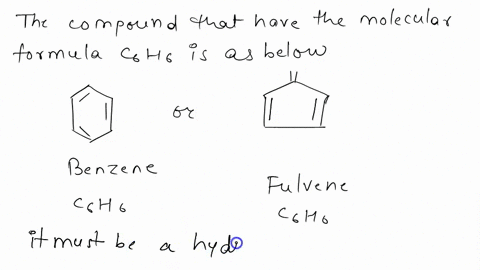 The compound that have the molecular
formula C6H6 is as below
or
Benzene
C6H6
Fulvene
C6H6
it must be a hyd